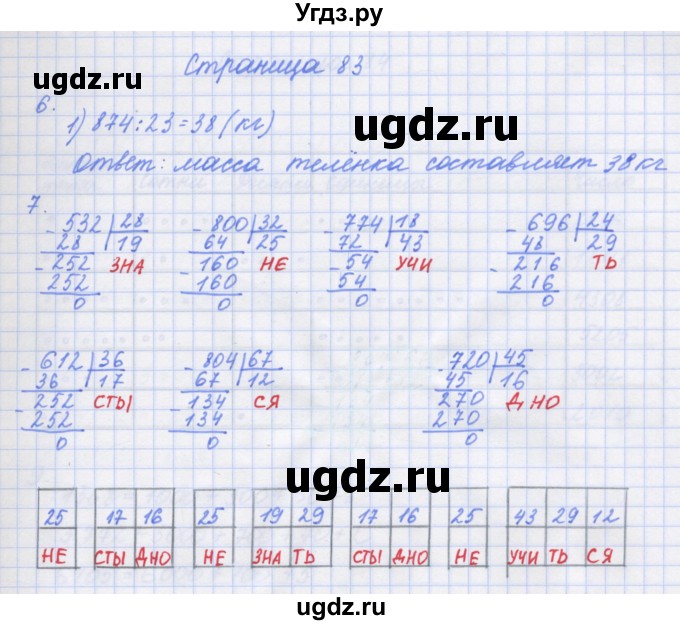 Угдз.ру
Страница 83
ugdz.ru
ugdz.ru
6.
1) 874:23=38 (кг)
Ответ: масса телёнка составляет 38 кг
7.
-532 28 -800 32 -774 18 -696 24
28 19 64 25 72 43 48 29
-252 ЗНА -160 НЕ -54 УЧИ -216 ТЬ
252 160 54 216
0 0 0 0
ugdz.ru
-612 36 -804 67 -720 45
36 17 67 12 45 16
-252 СТЫ -134 СЯ 270 ДНО
252 134 270
0 0 0
ugdz.ru
ugdz.ru
25 17 16 25 19 29 17 16 25 43 29 12
НЕ СТЫ ДНО НЕ ЗНА ТЬ СТЫ ДНО НЕ УЧИ ТЬ СЯ
ugdz.ru